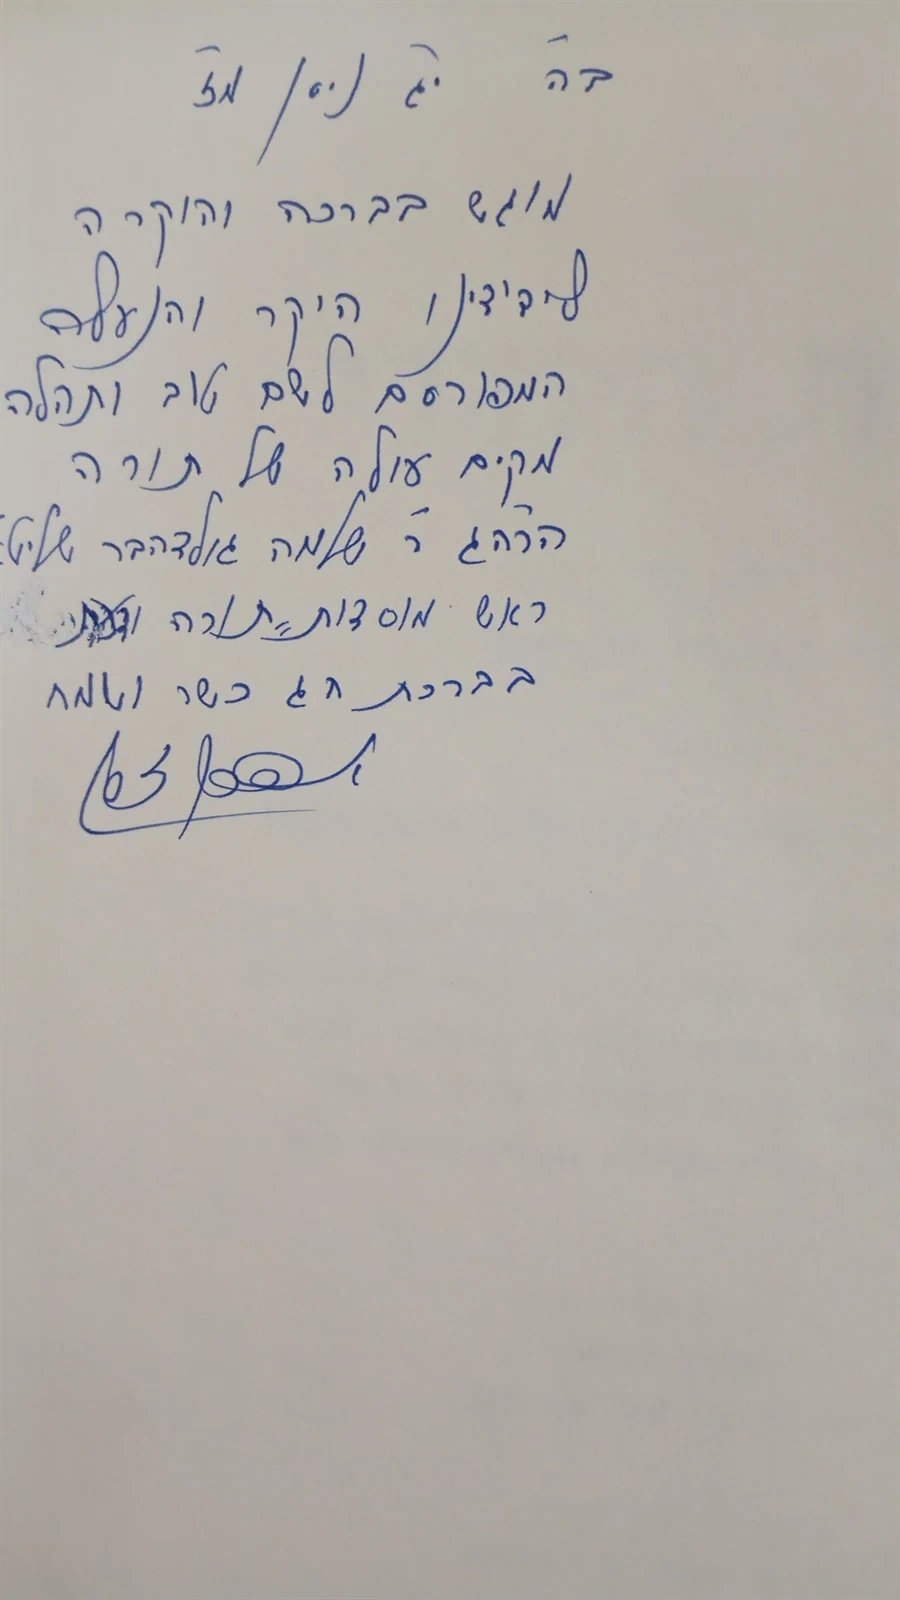 ב״ה י״ג ניסן מז
מוגש בברכה והוקרה
לידידינו היקר והנעלה
המפורסם לשם טוב ותהלה
מקים עולה של תורה
הרה״ג ר׳ שלמה גולדהבר שליט״א
ראש מוסדות תורה
בברכת חג כשר ושמח